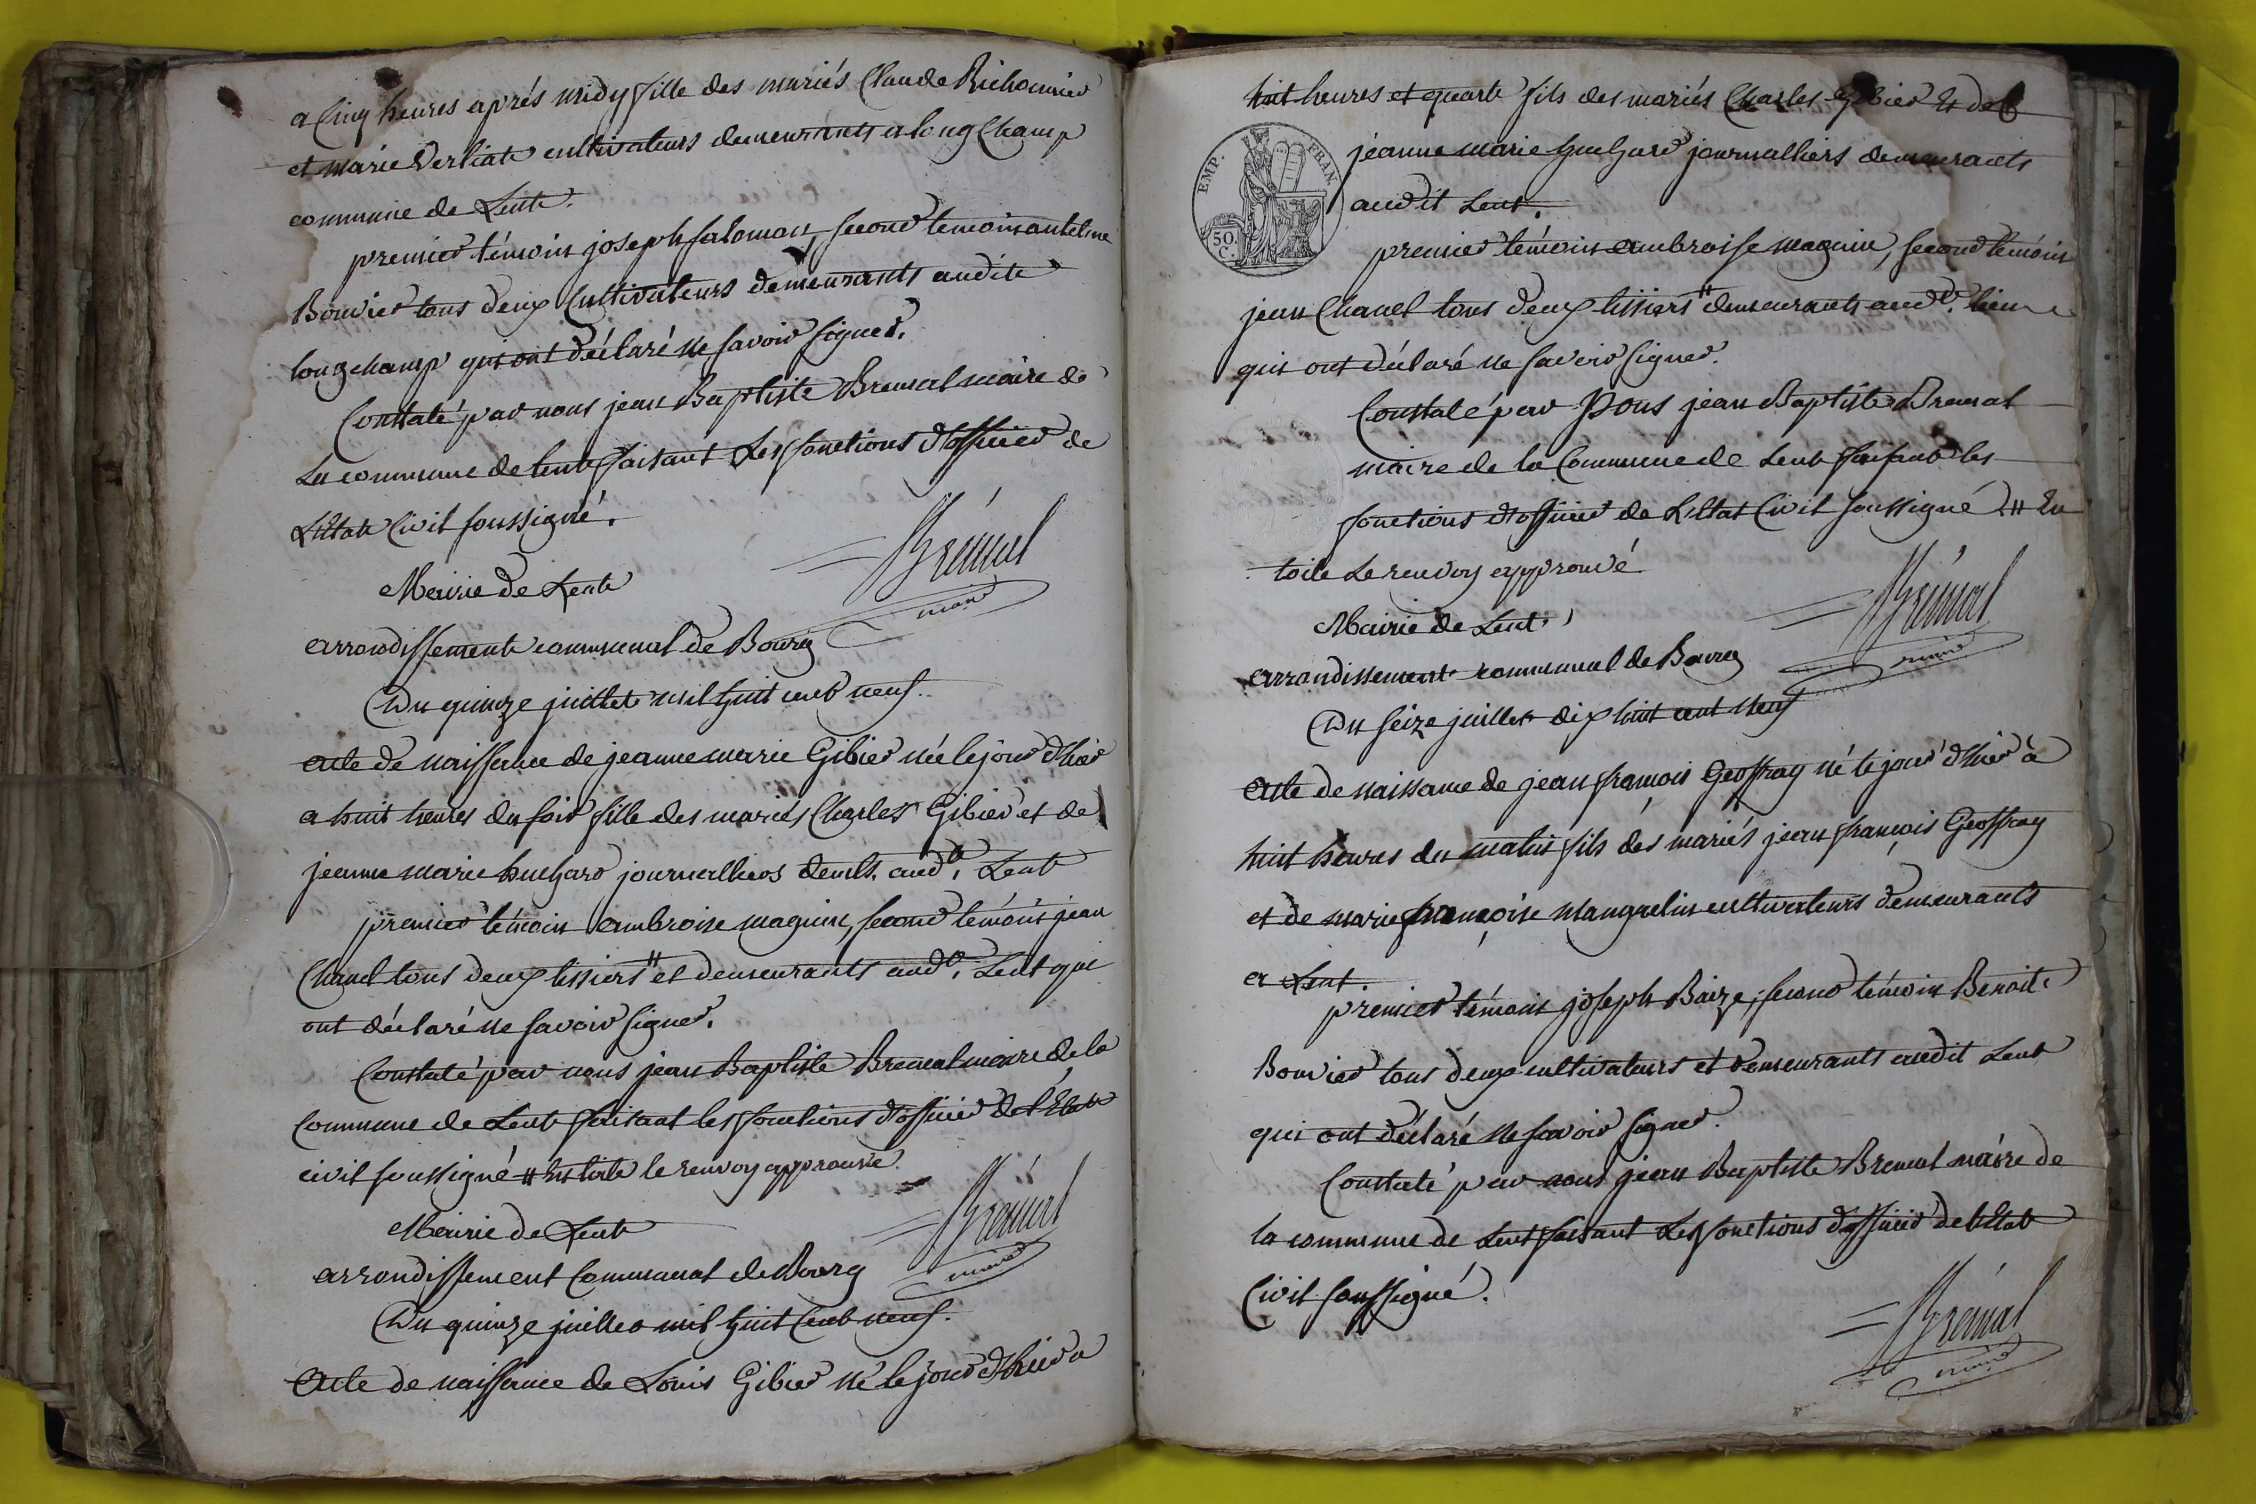 a Cinq heures aprés midy fille des mariés Claude Richonnier
et marie Verliat cultivateurs demeurants a longChamp
commune de Lent.
premier témoin joseph Salomon, second temoin antelme
Bouvier tous deux Cultivateurs demeurants audite
longchamp qui ont déclaré ne savoir signer.
Constaté par nous jean Baptiste Bremal maire de
La commune de lent faisant Les fonctions d'officier de
L'Etat Civil soussigné.
Bremal
maire
Mairie de Lent
arrondissement communal de Bourg
Du quinze juillet mil huit cent neuf.
acte de naissance de jeanne marie Gibier née le jour d'hier
a huit heures du soir fille des mariés Charles Gibier et de
jeanne marie huchard journalliers demts. audt. Lent
premier témoin ambroise maguin, second témoin jean
Chanel tous deux tissiers # et demeurants audt. Lent qui
ont déclaré ne savoir signer.
Constaté par nous jean Baptiste Bremal maire de la
Commune de Lent faisant les fonctions d'officier de l'Etat
civil soussigné # en toile le renvoy approuvé.
Bremal
maire
Mairie de Lent
arrondissement Communal de Bourg
Du quinze juillet mil huit Cent neuf.
Acte de naissance de Louis Gibier né le jour d'hier a
huit heures et quart fils des mariés Charles Gibier et de
EMP. FRAN.
50. C.
jeanne marie huchard journalliers demeurants
audit Lent.
premier témoin ambroise maguin, second témoin
jean Chanel tous deux tissiers # demeurants audt. lieu
qui ont déclaré ne savoir signer.
Constaté par Nous jean Baptiste Bremal
maire de la Commune de Lent faisant les
fonctions d'officier de L'Etat Civil soussigné # En
toile Le renvoy approuvé
Bremal
maire
Mairie de Lent
arrondissement communal de Bourg
Du seize juillet dix huit cent neuf
acte de naissance de jean françois Geoffray né le jour d'hier à
huit heures du matin fils des mariés jean françois Geoffray
et de marie françoise Manguelin cultivateurs demeurants
a Lent.
premier témoin joseph Baize, second témoin Benoit
Bouvier tous deux cultivateurs et demeurants audit Lent
qui ont déclaré ne savoir signer.
Constaté par nous jean Baptiste Bremal maire de
la commune de Lent faisant Les fonctions d'officier de l'Etat
Civil soussigné.
Bremal
maire